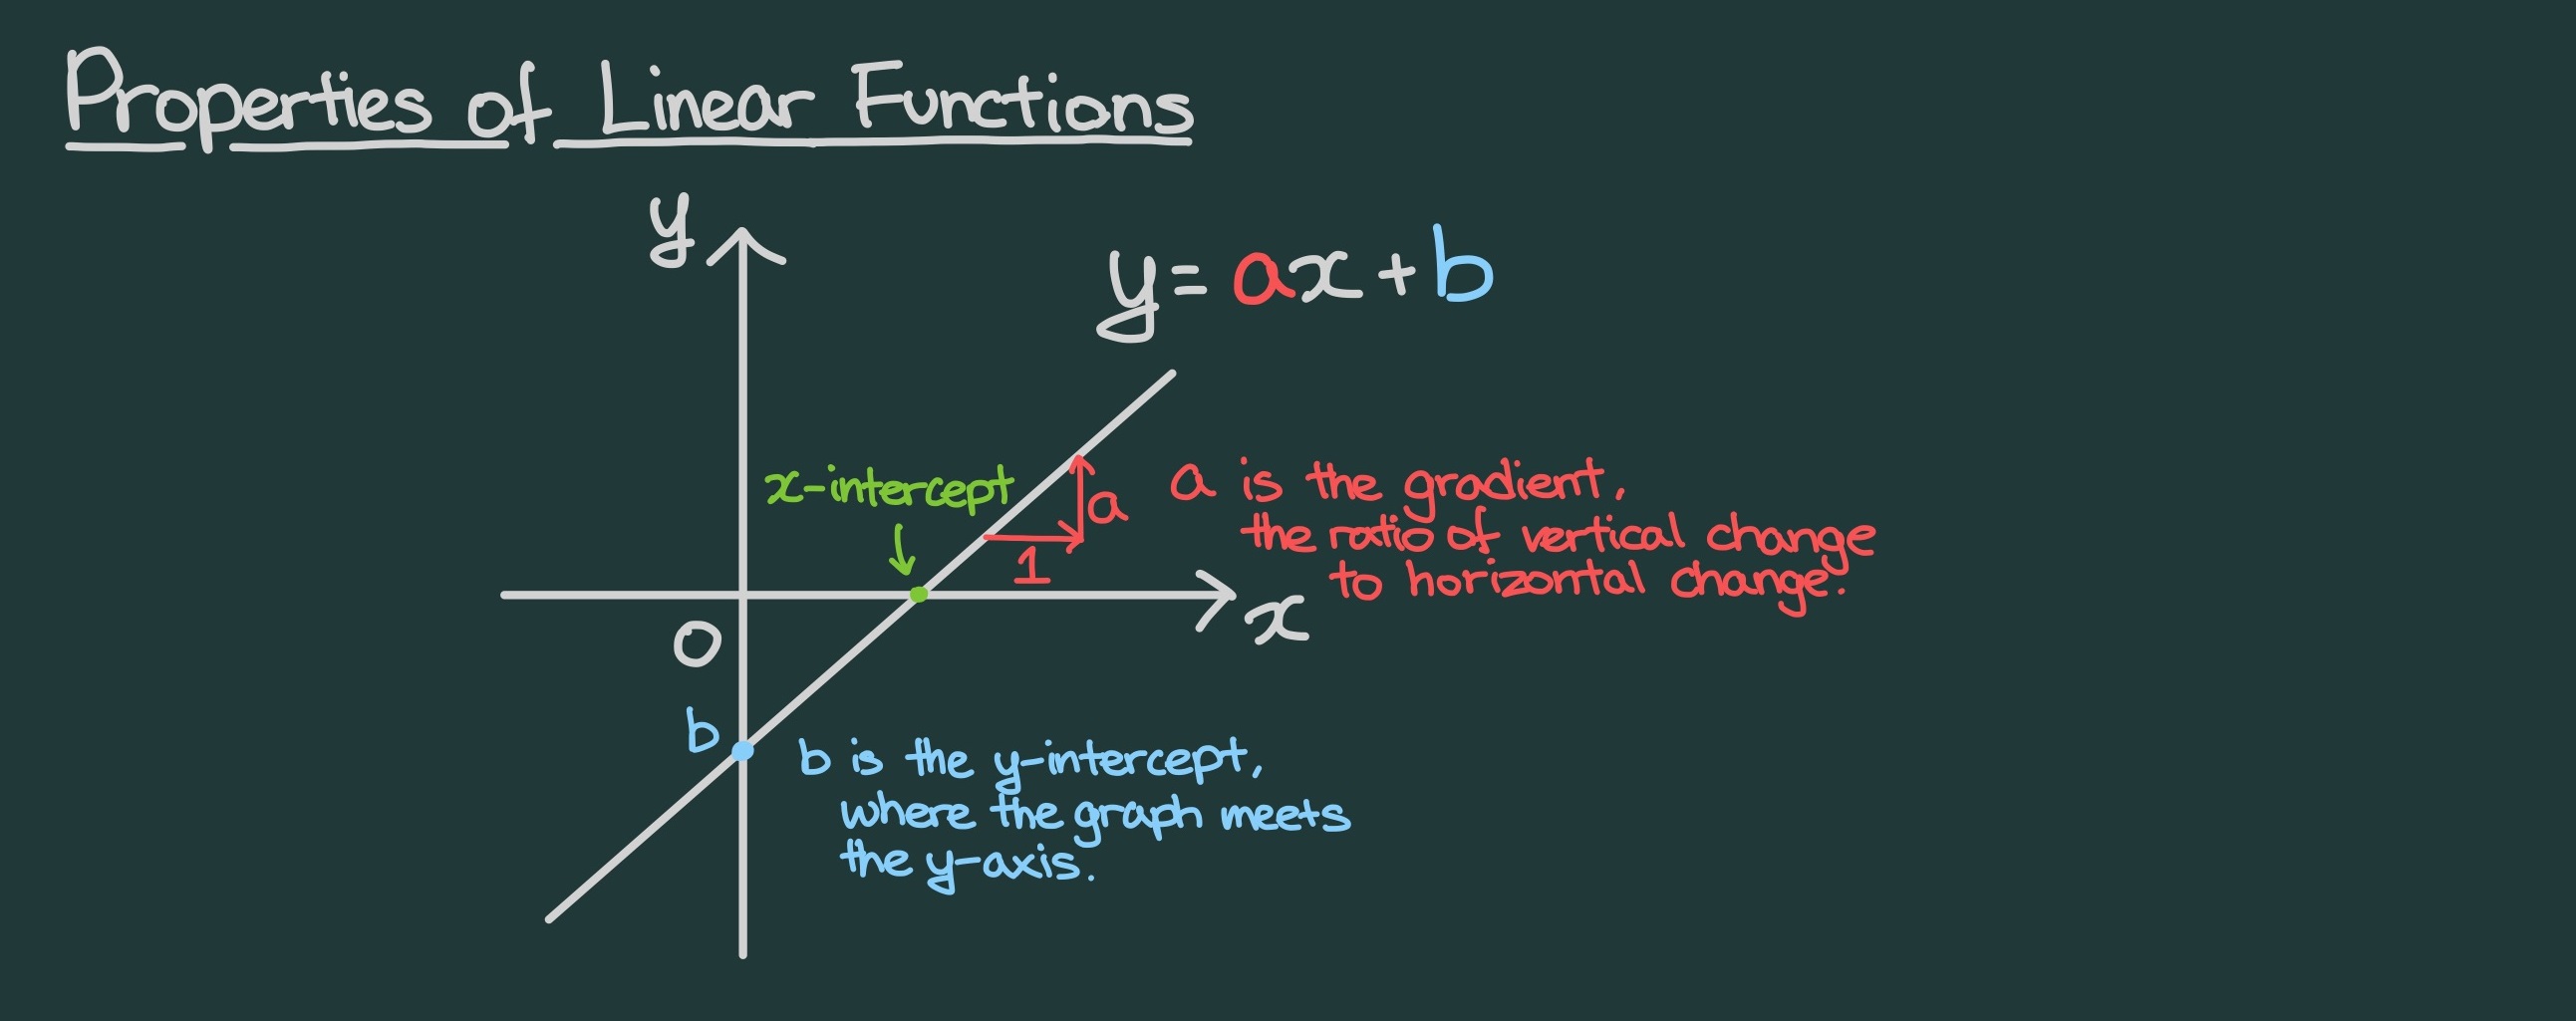 Properties of Linear Functions
y
y = ax + b
x-intercept
a
1
a is the gradient,
the ratio of vertical change
to horizontal change.
x
O
b
b is the y-intercept,
where the graph meets
the y-axis.